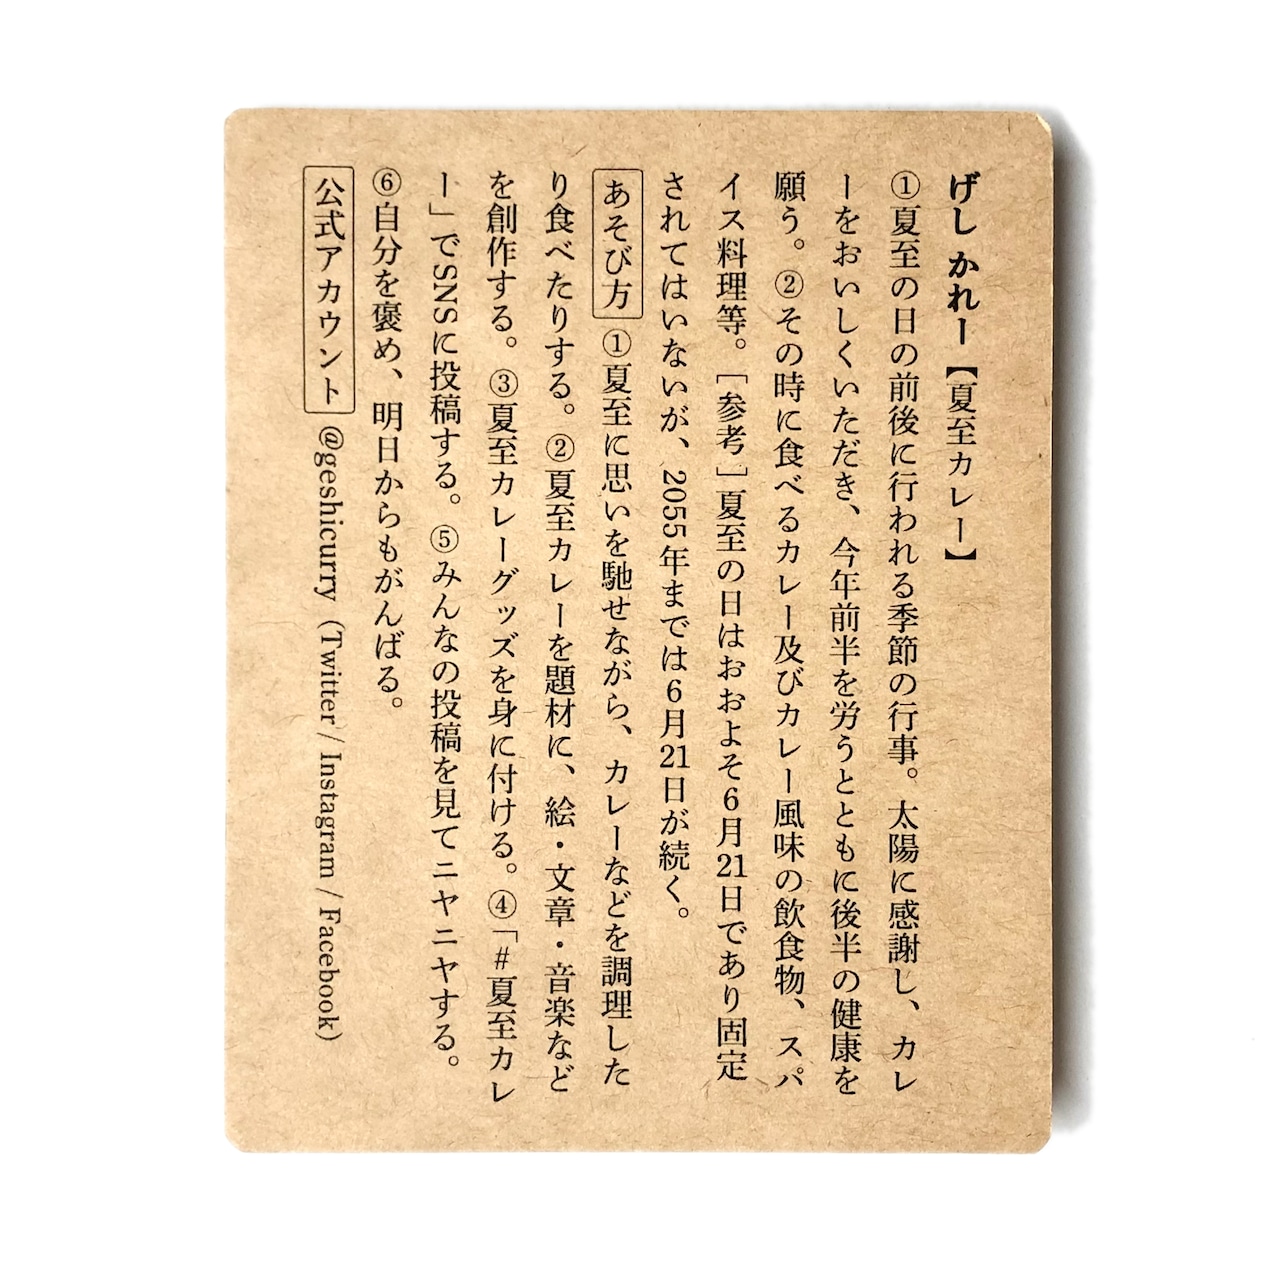 げし かれー【夏至カレー】
①夏至の日の前後に行われる季節の行事。太陽に感謝し、カレ
ーをおいしくいただき、今年前半を労うとともに後半の健康を
願う。②その時に食べるカレー及びカレー風味の飲食物、スパ
イス料理等。［参考］夏至の日はおおよそ6月21日であり固定
されてはいないが、2055年までは6月21日が続く。
あそび方 ①夏至に思いを馳せながら、カレーなどを調理した
り食べたりする。②夏至カレーを題材に、絵・文章・音楽など
を創作する。③夏至カレーグッズを身に付ける。④「#夏至カレ
ー」でSNSに投稿する。⑤みんなの投稿を見てニヤニヤする。
⑥自分を褒め、明日からもがんばる。
公式アカウント @geshicurry（Twitter / Instagram / Facebook）